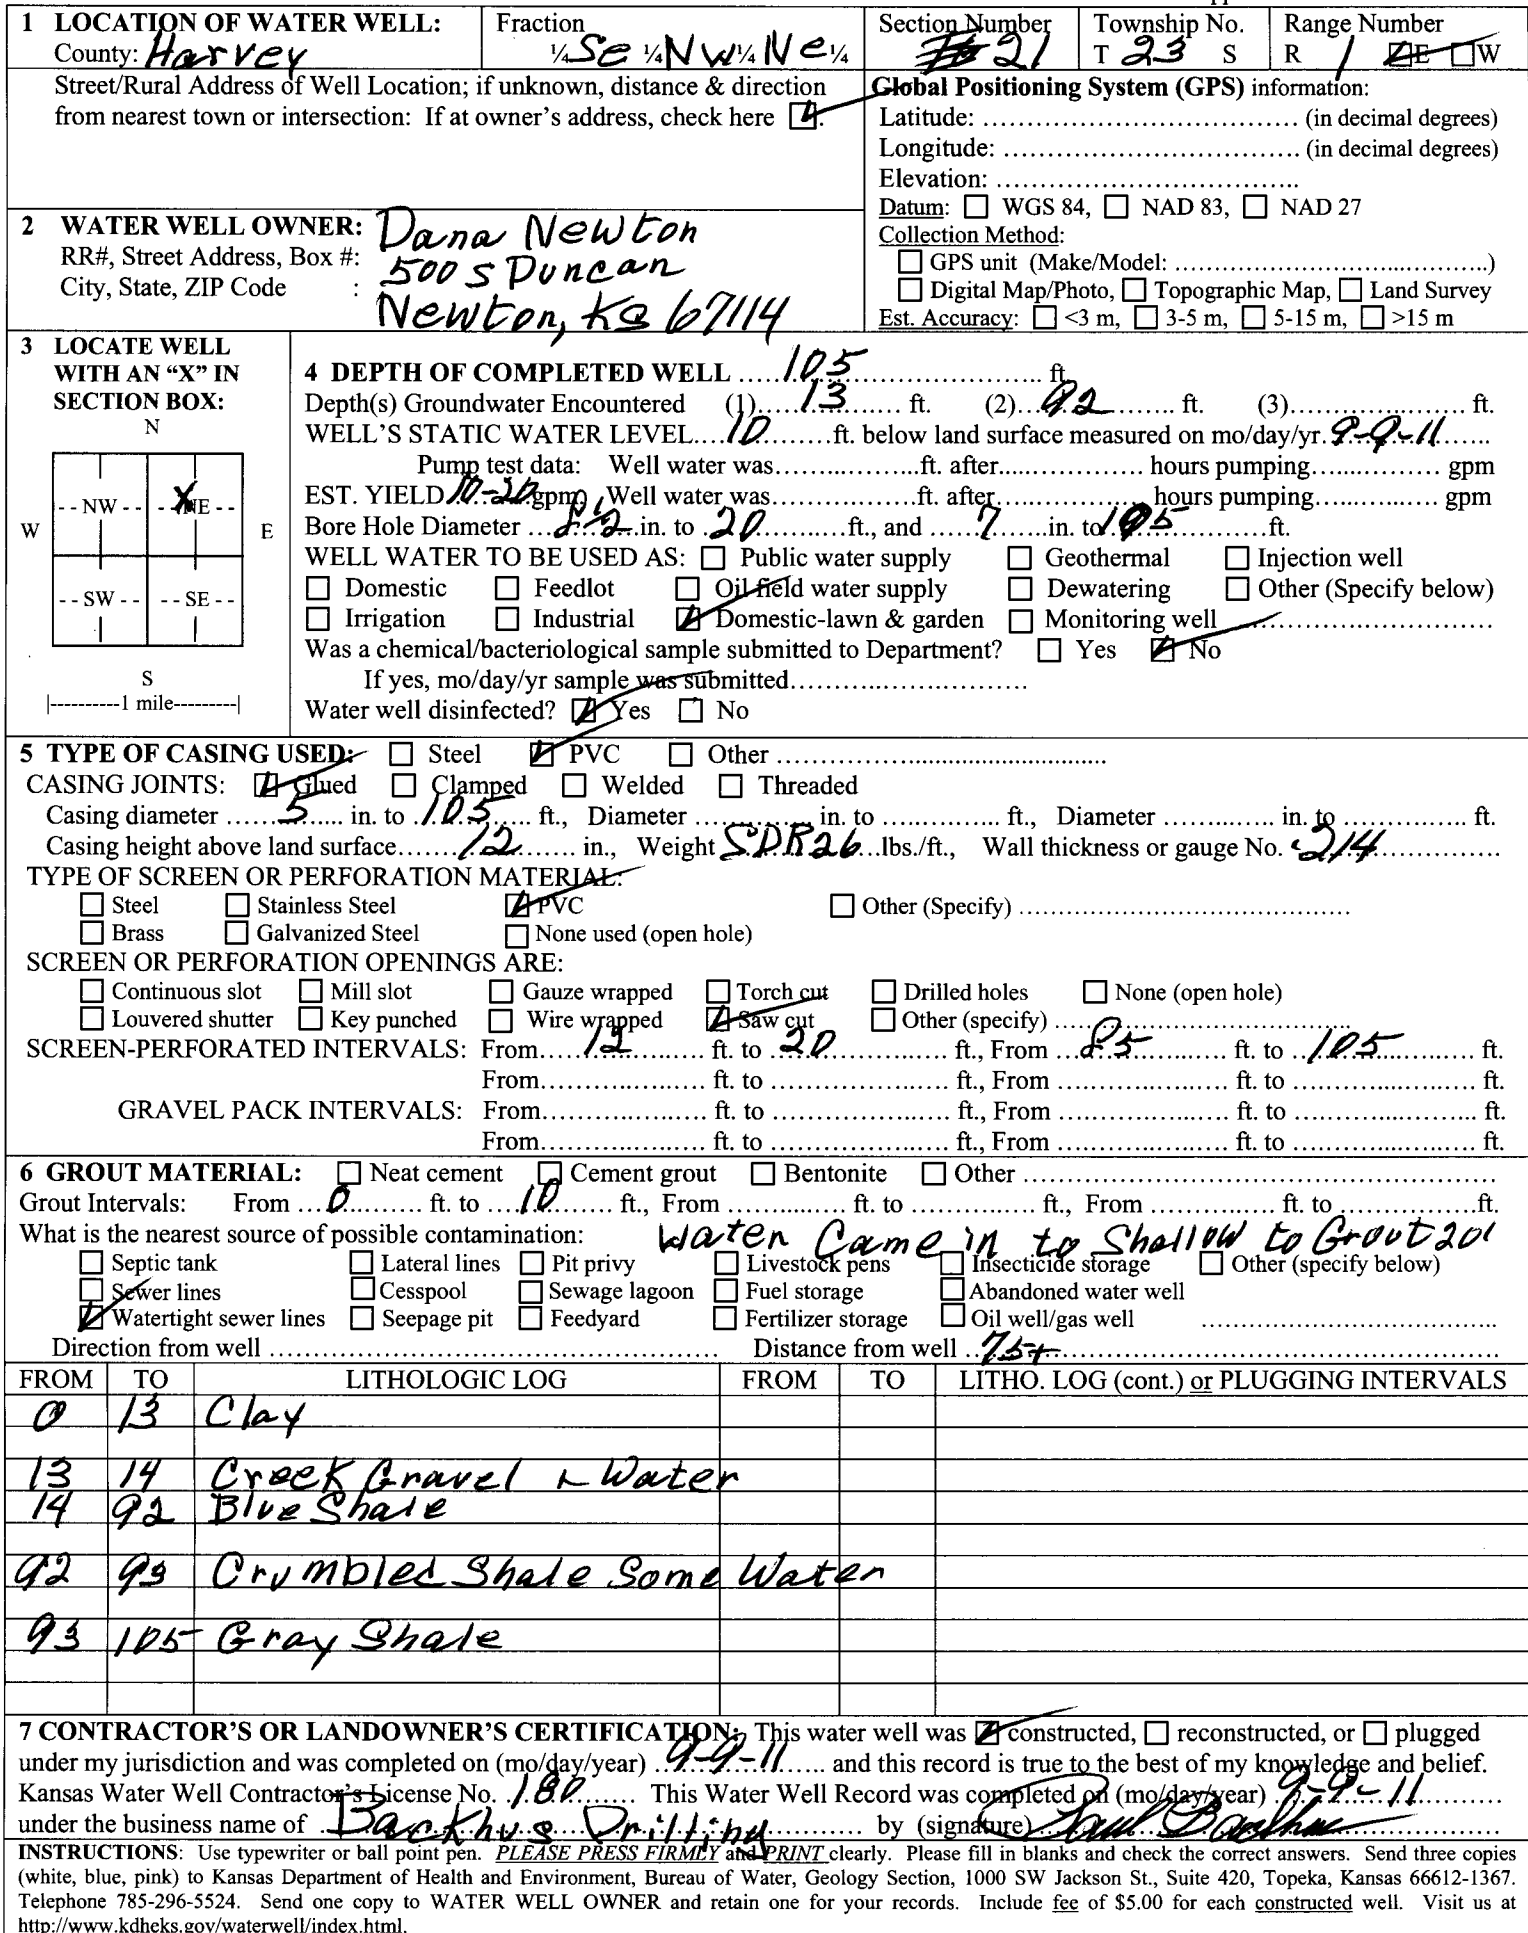 1 LOCATION OF WATER WELL: Fraction Section Number Township No. Range Number
County: Harvey ¼ Se ¼ NW ¼ Ne ¼ 21 T 23 S R 1 ☑E ☐W
Street/Rural Address of Well Location; if unknown, distance & direction
from nearest town or intersection: If at owner's address, check here ☑.
Global Positioning System (GPS) information:
Latitude: .................................... (in decimal degrees)
Longitude: .................................. (in decimal degrees)
Elevation: ...................................
Datum: ☐ WGS 84, ☐ NAD 83, ☐ NAD 27
Collection Method:
☐ GPS unit (Make/Model: ....................................)
☐ Digital Map/Photo, ☐ Topographic Map, ☐ Land Survey
Est. Accuracy: ☐ <3 m, ☐ 3-5 m, ☐ 5-15 m, ☐ >15 m
2 WATER WELL OWNER: Dana Newton
RR#, Street Address, Box #: 500 S Duncan
City, State, ZIP Code : Newton, KS 67114
3 LOCATE WELL
WITH AN "X" IN
SECTION BOX:
N
X
NW NE
W E
SW SE
S
|----------1 mile---------|
4 DEPTH OF COMPLETED WELL 105 ft
Depth(s) Groundwater Encountered (1) 13 ft. (2) 92 ft. (3) ft.
WELL'S STATIC WATER LEVEL 10 ft. below land surface measured on mo/day/yr. 9-9-11
Pump test data: Well water was ft. after hours pumping gpm
EST. YIELD 10-20 gpm. Well water was ft. after hours pumping gpm
Bore Hole Diameter 8½ in. to 20 ft., and 7 in. to 105 ft.
WELL WATER TO BE USED AS: ☐ Public water supply ☐ Geothermal ☐ Injection well
☐ Domestic ☐ Feedlot ☐ Oil field water supply ☐ Dewatering ☐ Other (Specify below)
☐ Irrigation ☐ Industrial ☑ Domestic-lawn & garden ☐ Monitoring well
Was a chemical/bacteriological sample submitted to Department? ☐ Yes ☑ No
If yes, mo/day/yr sample was submitted
Water well disinfected? ☑ Yes ☐ No
5 TYPE OF CASING USED: ☐ Steel ☑ PVC ☐ Other
CASING JOINTS: ☑ Glued ☐ Clamped ☐ Welded ☐ Threaded
Casing diameter 5 in. to 105 ft., Diameter in. to ft., Diameter in. to ft.
Casing height above land surface 12 in., Weight SDR26 lbs./ft., Wall thickness or gauge No. .214
TYPE OF SCREEN OR PERFORATION MATERIAL:
☐ Steel ☐ Stainless Steel ☑ PVC ☐ Other (Specify)
☐ Brass ☐ Galvanized Steel ☐ None used (open hole)
SCREEN OR PERFORATION OPENINGS ARE:
☐ Continuous slot ☐ Mill slot ☐ Gauze wrapped ☐ Torch cut ☐ Drilled holes ☐ None (open hole)
☐ Louvered shutter ☐ Key punched ☐ Wire wrapped ☑ Saw cut ☐ Other (specify)
SCREEN-PERFORATED INTERVALS: From 12 ft. to 20 ft., From 85 ft. to 105 ft.
From ft. to ft., From ft. to ft.
GRAVEL PACK INTERVALS: From ft. to ft., From ft. to ft.
From ft. to ft., From ft. to ft.
6 GROUT MATERIAL: ☐ Neat cement ☐ Cement grout ☐ Bentonite ☐ Other
Grout Intervals: From 0 ft. to 10 ft., From ft. to ft., From ft. to ft.
What is the nearest source of possible contamination: Water Came in to Shallow to Grout 20'
☐ Septic tank ☐ Lateral lines ☐ Pit privy ☐ Livestock pens ☐ Insecticide storage ☐ Other (specify below)
☐ Sewer lines ☐ Cesspool ☐ Sewage lagoon ☐ Fuel storage ☐ Abandoned water well
☑ Watertight sewer lines ☐ Seepage pit ☐ Feedyard ☐ Fertilizer storage ☐ Oil well/gas well
Direction from well Distance from well 75+
FROM TO LITHOLOGIC LOG FROM TO LITHO. LOG (cont.) or PLUGGING INTERVALS
0 13 Clay
13 14 Creek Gravel + Water
14 92 Blue Shale
92 93 Crumbled Shale Some Water
93 105 Gray Shale
7 CONTRACTOR'S OR LANDOWNER'S CERTIFICATION: This water well was ☑ constructed, ☐ reconstructed, or ☐ plugged
under my jurisdiction and was completed on (mo/day/year) 9-9-11 and this record is true to the best of my knowledge and belief.
Kansas Water Well Contractor's License No. 180 This Water Well Record was completed on (mo/day/year) 9-9-11
under the business name of Backhus Drilling by (signature) Paul Backhus
INSTRUCTIONS: Use typewriter or ball point pen. PLEASE PRESS FIRMLY and PRINT clearly. Please fill in blanks and check the correct answers. Send three copies
(white, blue, pink) to Kansas Department of Health and Environment, Bureau of Water, Geology Section, 1000 SW Jackson St., Suite 420, Topeka, Kansas 66612-1367.
Telephone 785-296-5524. Send one copy to WATER WELL OWNER and retain one for your records. Include fee of $5.00 for each constructed well. Visit us at
http://www.kdheks.gov/waterwell/index.html.